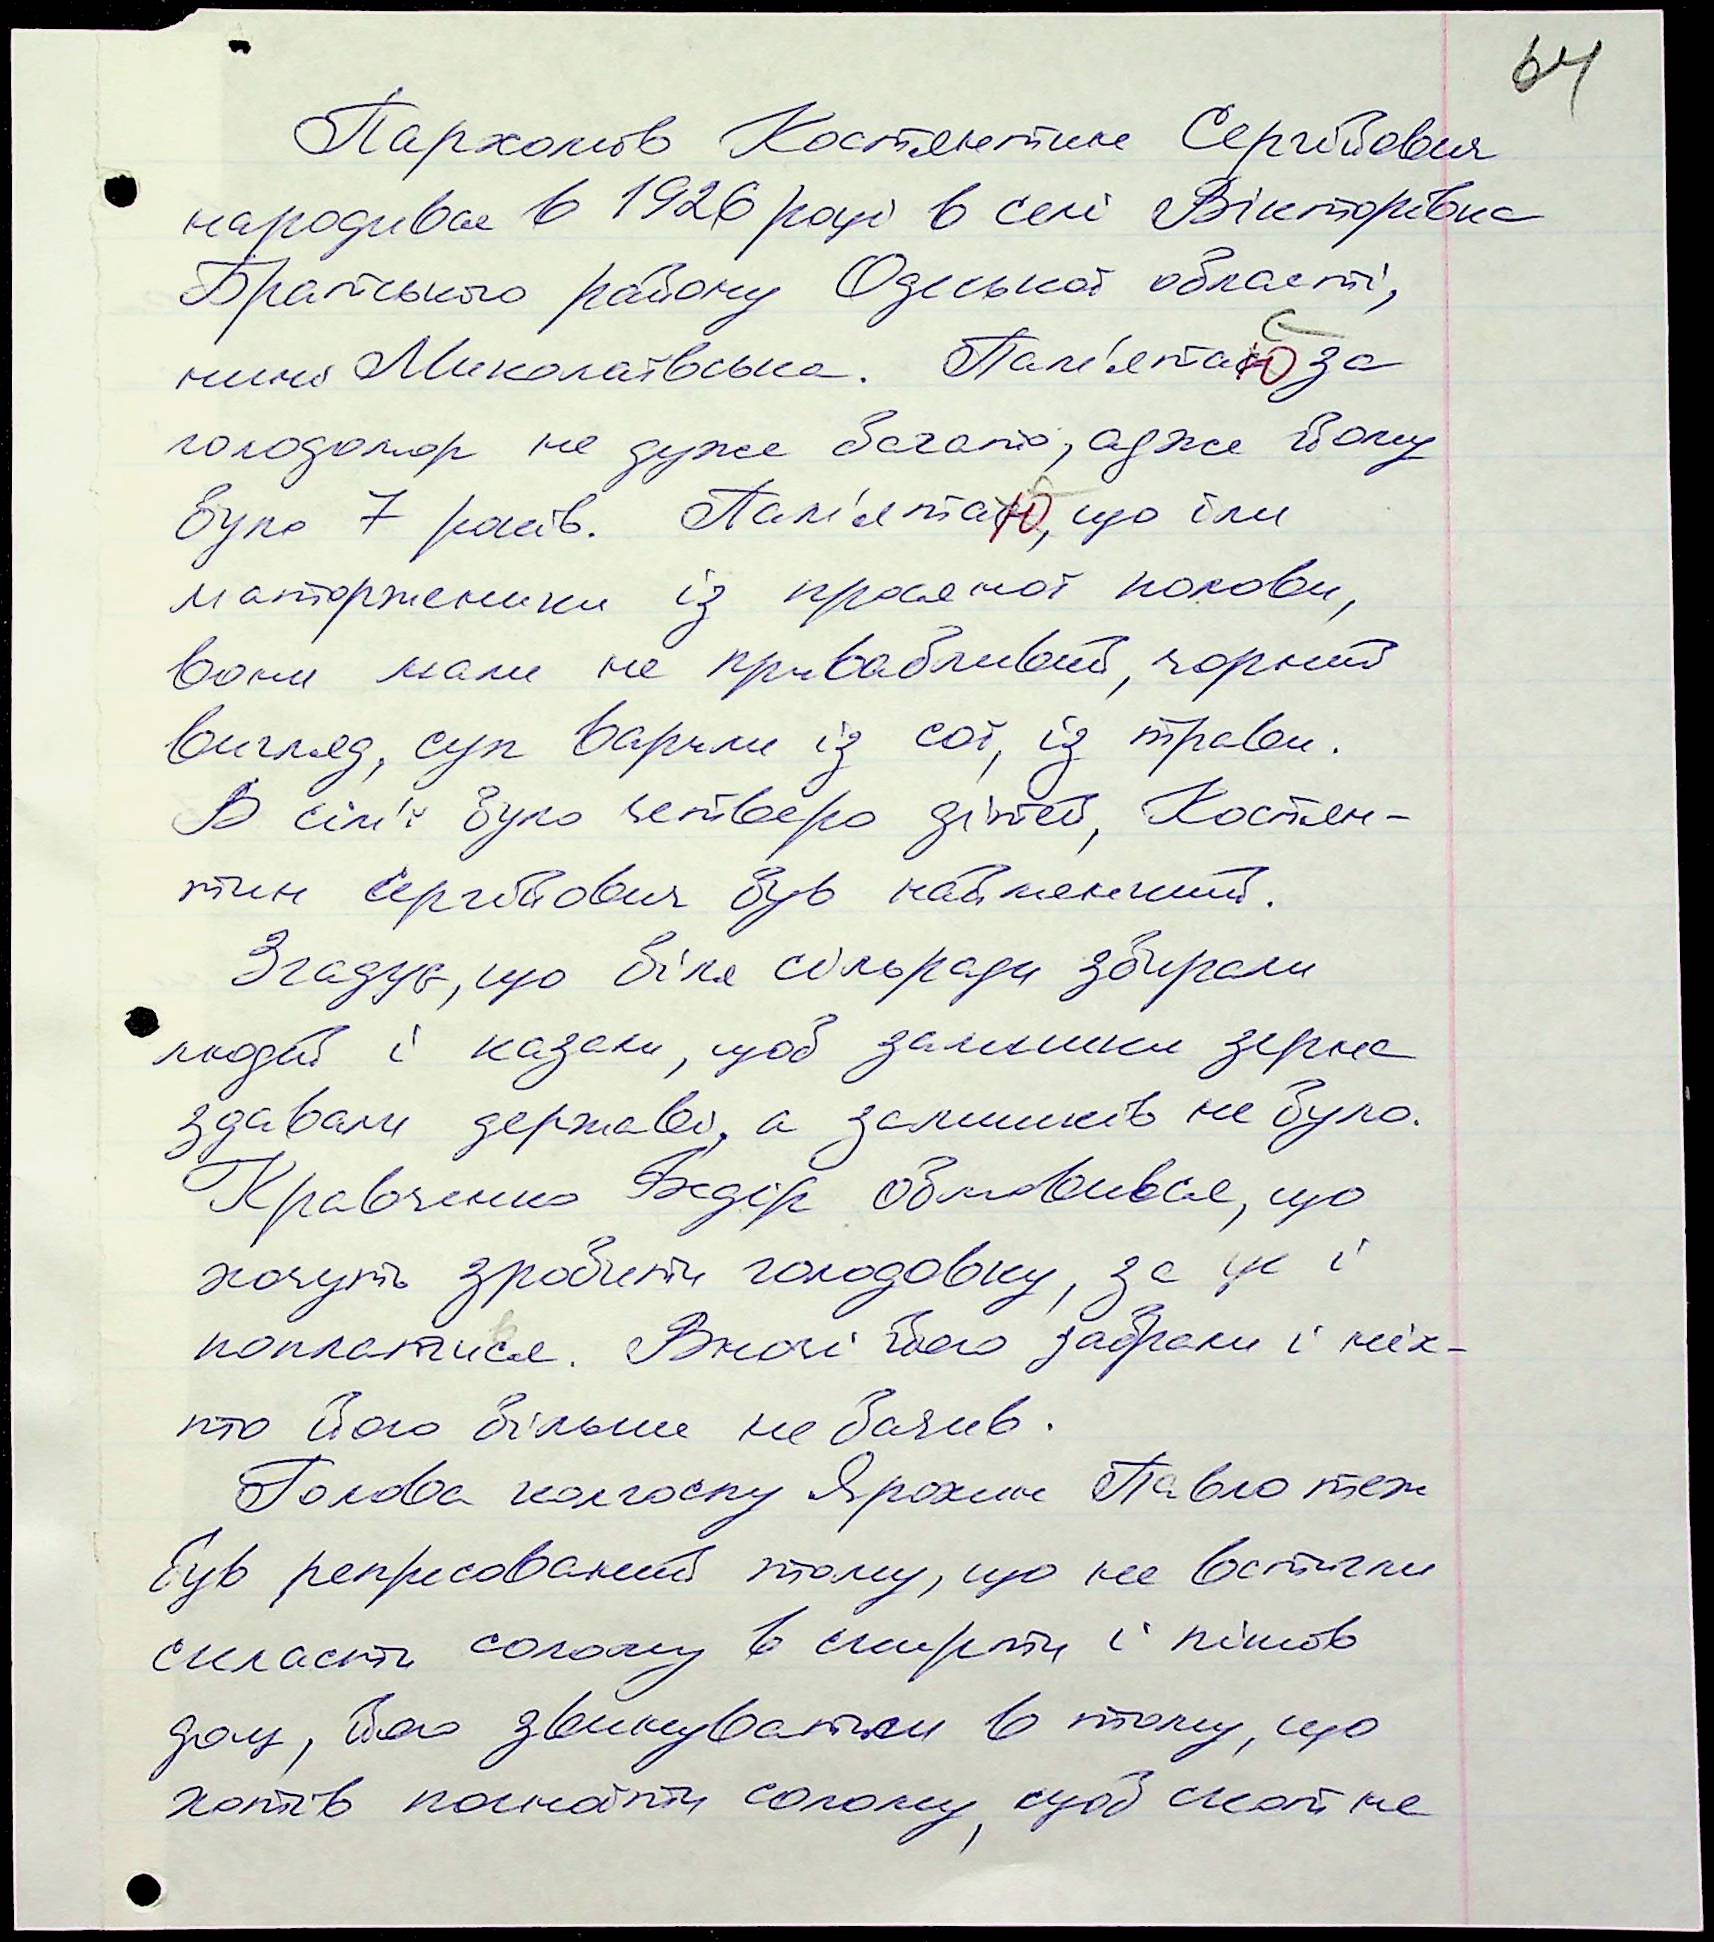 64
Пархомов Костянтин Сергійович
народився в 1926 році в селі Вікторівка
Братського району Одеської області,
нині Миколаївська. Пам'ятаю за
голодомор не дуже багато, адже йому
було 7 років. Пам'ятаю, що їли
маторженики із просяної полови,
вони мали не привабливий, чорний
вигляд, суп варили із сої, із трави.
В сім'ї було четверо дітей, Костян-
тин Сергійович був найменший.
Згадує, що біля сільради збирали
людей і казали, щоб залишки зерна
здавали державі, а залишків не було.
Кравченко Федір обмовився, що
хочуть зробити голодовку, за це і
поплатився. Вночі його забрали і ніх-
то його більше не бачив.
Голова колгоспу Ярохин Павло теж
був репресований тому, що не встигли
скласти солому в скирти і пішов
дощ, його звинуватили в тому, що
хотів погноїти солому, щоб скот не